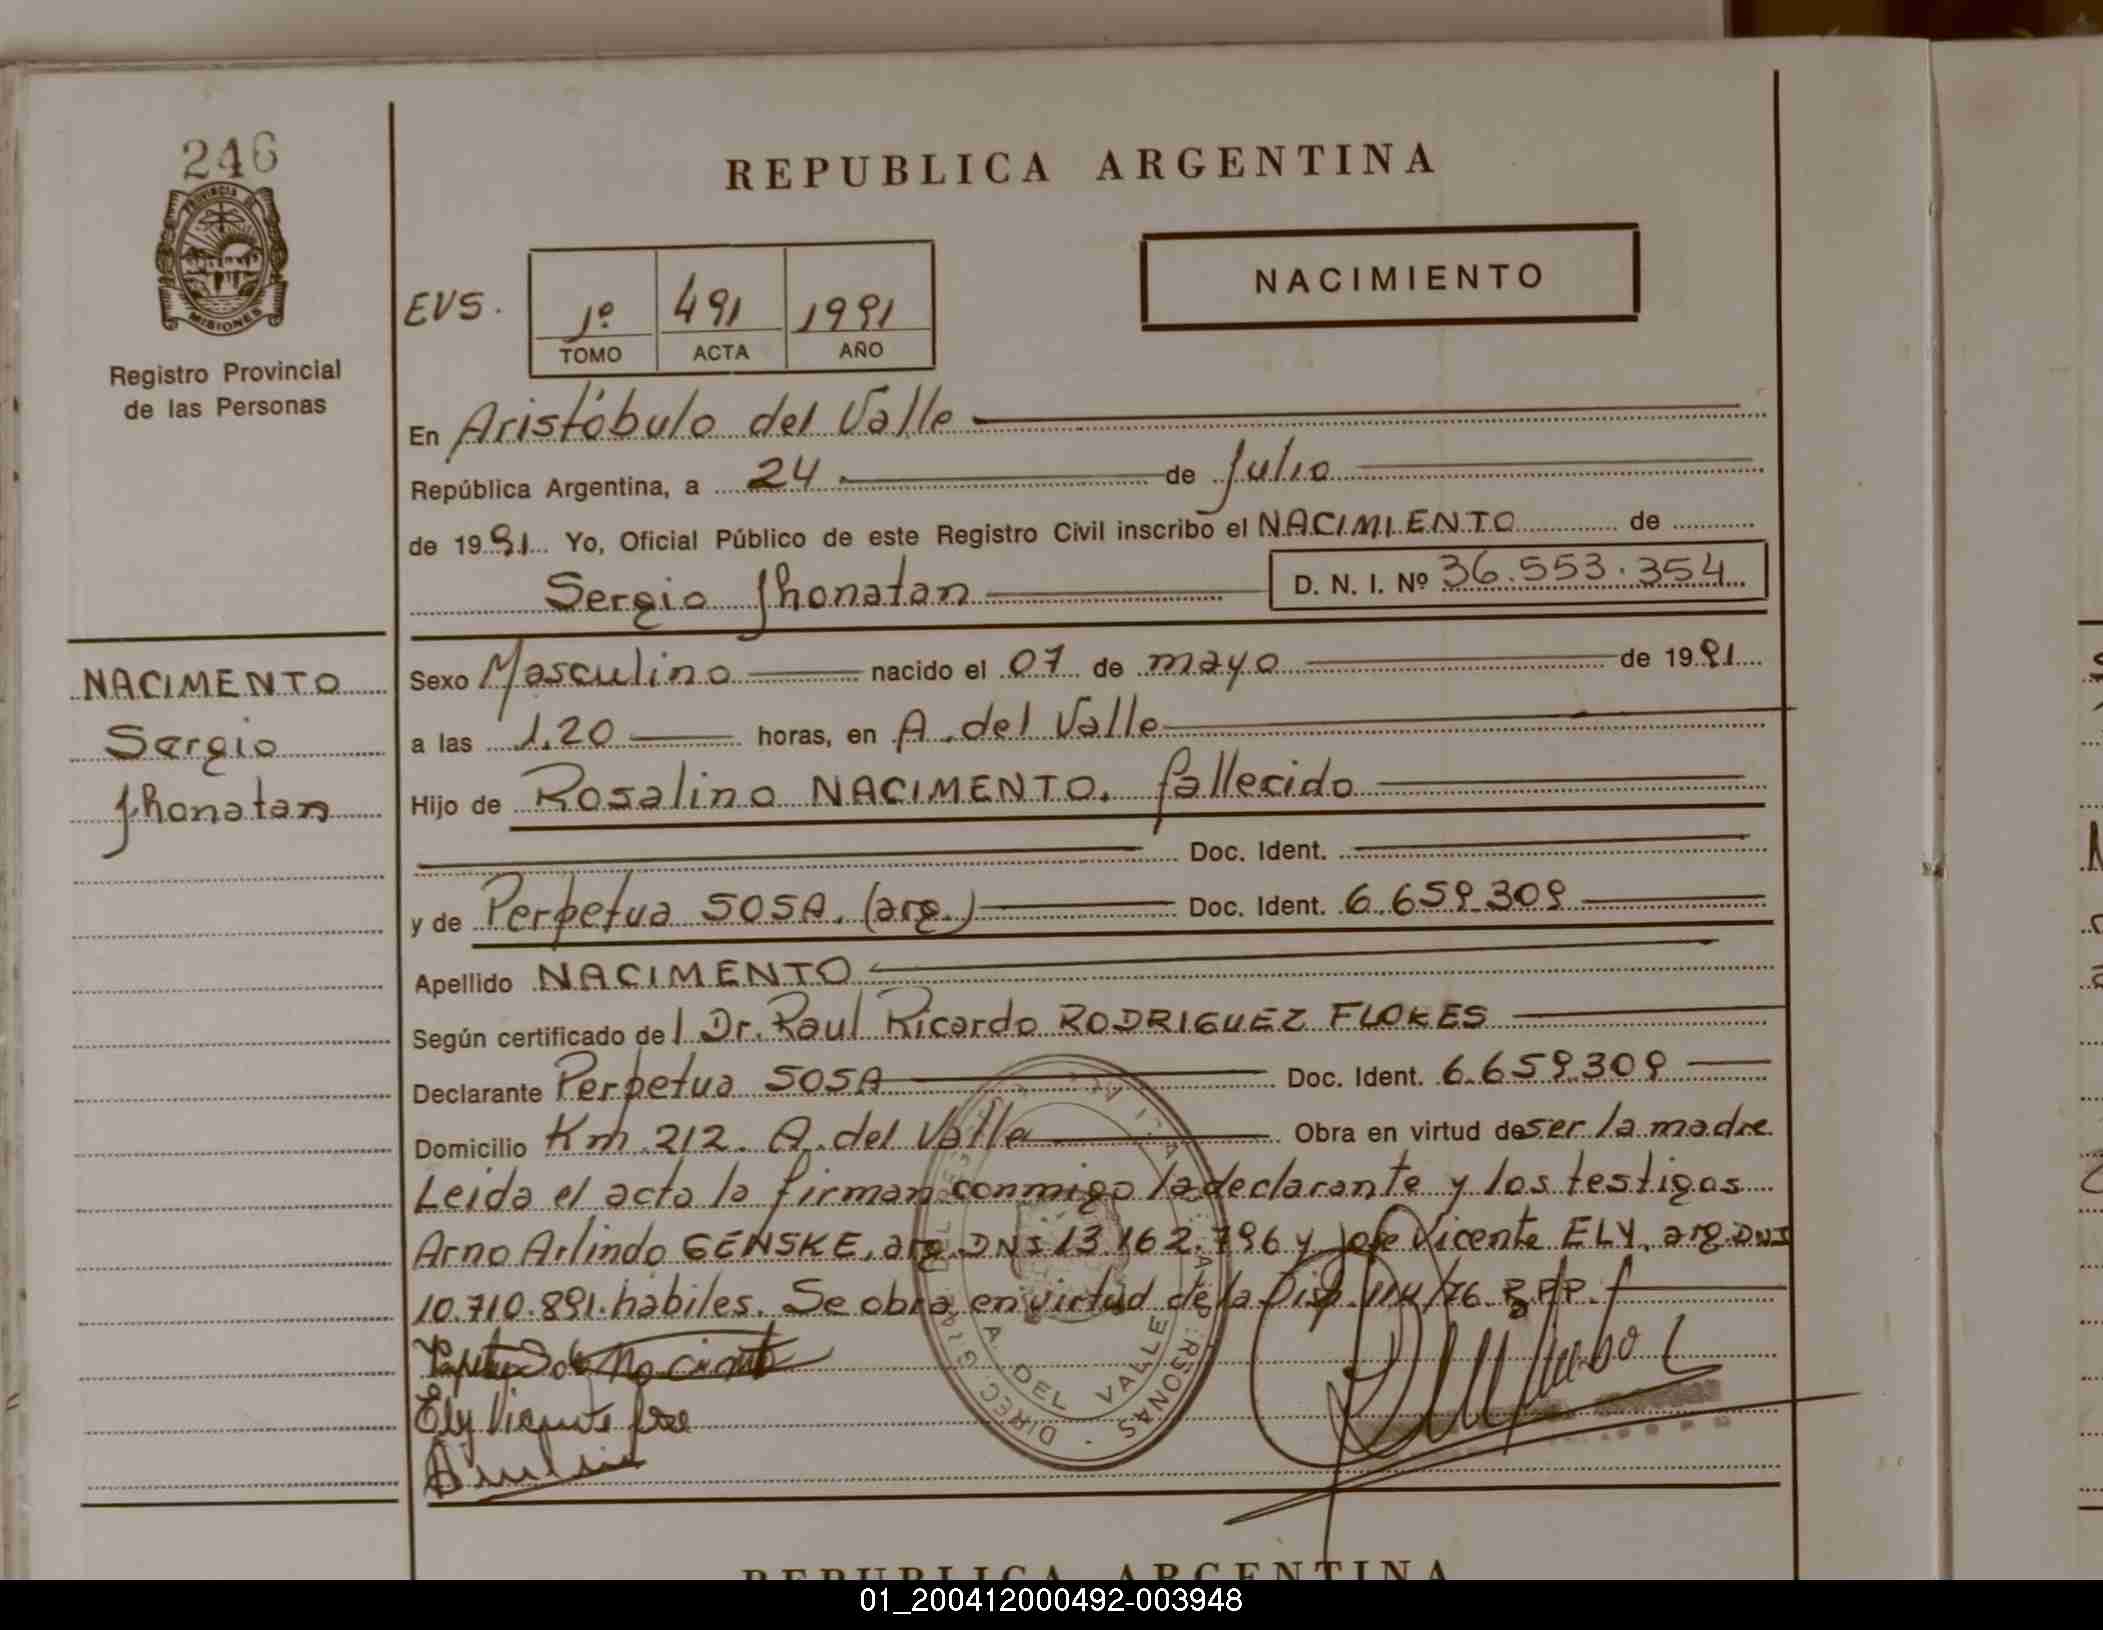 246
PROVINCIA DE
MISIONES
Registro Provincial
de las Personas
REPUBLICA ARGENTINA
EVS.
1º 491 1991
TOMO ACTA AÑO
NACIMIENTO
En Aristóbulo del Valle
República Argentina, a 24 de Julio
de 1991 Yo, Oficial Público de este Registro Civil inscribo el NACIMIENTO de
Sergio Jhonatan D. N. I. Nº 36.553.354
NACIMENTO
Sergio
Jhonatan
Sexo Masculino nacido el 07 de mayo de 1991
a las 1.20 horas, en A. del Valle
Hijo de Rosalino NACIMENTO. fallecido
Doc. Ident.
y de Perpetua SOSA. (arg.) Doc. Ident. 6.659.309
Apellido NACIMENTO
Según certificado del Dr. Raul Ricardo RODRIGUEZ FLORES
Declarante Perpetua SOSA Doc. Ident. 6.659.309
Domicilio Km. 212. A. del Valle Obra en virtud de ser la madre
Leida el acta la firman conmigo la declarante y los testigos
Arno Arlindo GENSKE, arg. DNI 13.162.796 y Jose Vicente ELY, arg. DNI
10.710.891. habiles. Se obra en virtud de la Disp. /76 R.P.P.
Ely Vicente Jose
A. DEL VALLE
REPUBLICA ARGENTINA
01_200412000492-003948